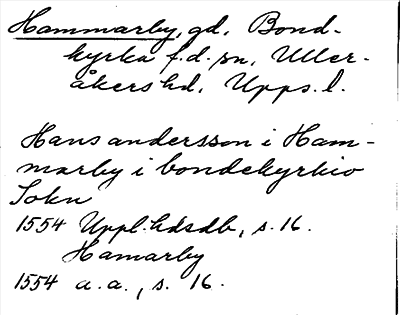 Hammarby, gd, Bond-
kyrka f.d. sn, Uller-
åkers hd, Upps. l.
Hans andersson i Ham-
marby i bondekyrkio
Sokn
1554 Uppl. hdsdb, s. 16.
Hamarby
1554 a.a., s. 16.